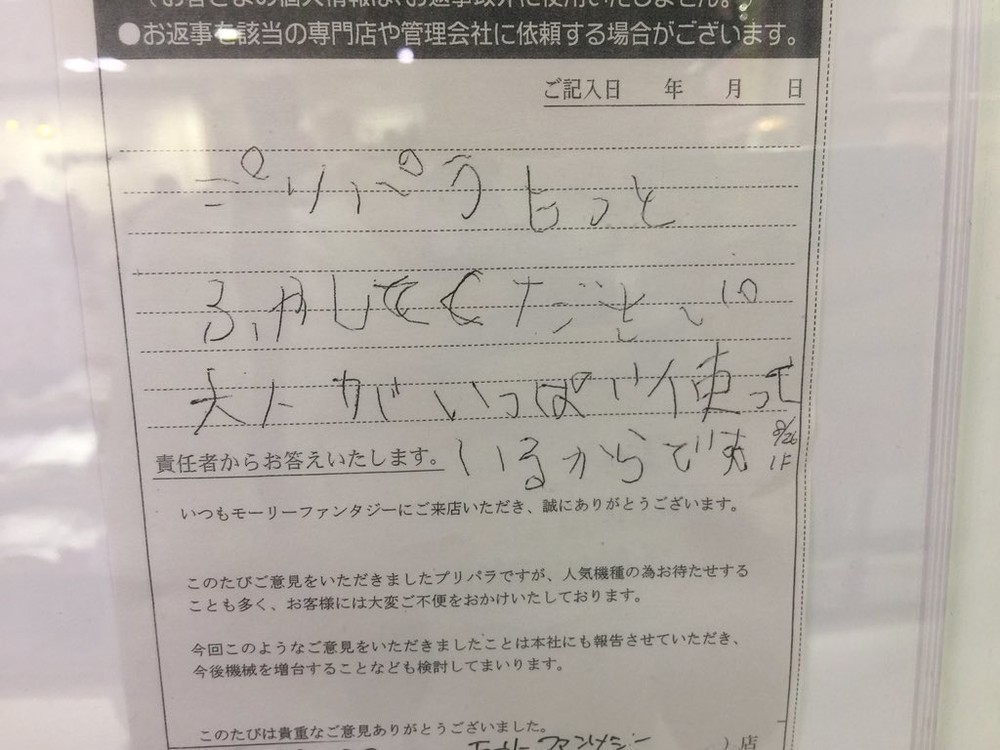 (お客さまの個人情報は、お返事以外に使用いたしません。)
●お返事を該当の専門店や管理会社に依頼する場合がございます。
ご記入日 年 月 日
プリパラもっと
ふやしてください。
大人がいっぱい使って
いるからです
8/26
1F
責任者からお答えいたします。
いつもモーリーファンタジーにご来店いただき、誠にありがとうございます。
このたびご意見をいただきましたプリパラですが、人気機種の為お待たせする
ことも多く、お客様には大変ご不便をおかけいたしております。
今回このようなご意見をいただきましたことは本社にも報告させていただき、
今後機械を増台することなども検討してまいります。
このたびは貴重なご意見ありがとうございました。
モーリーファンタジー )店